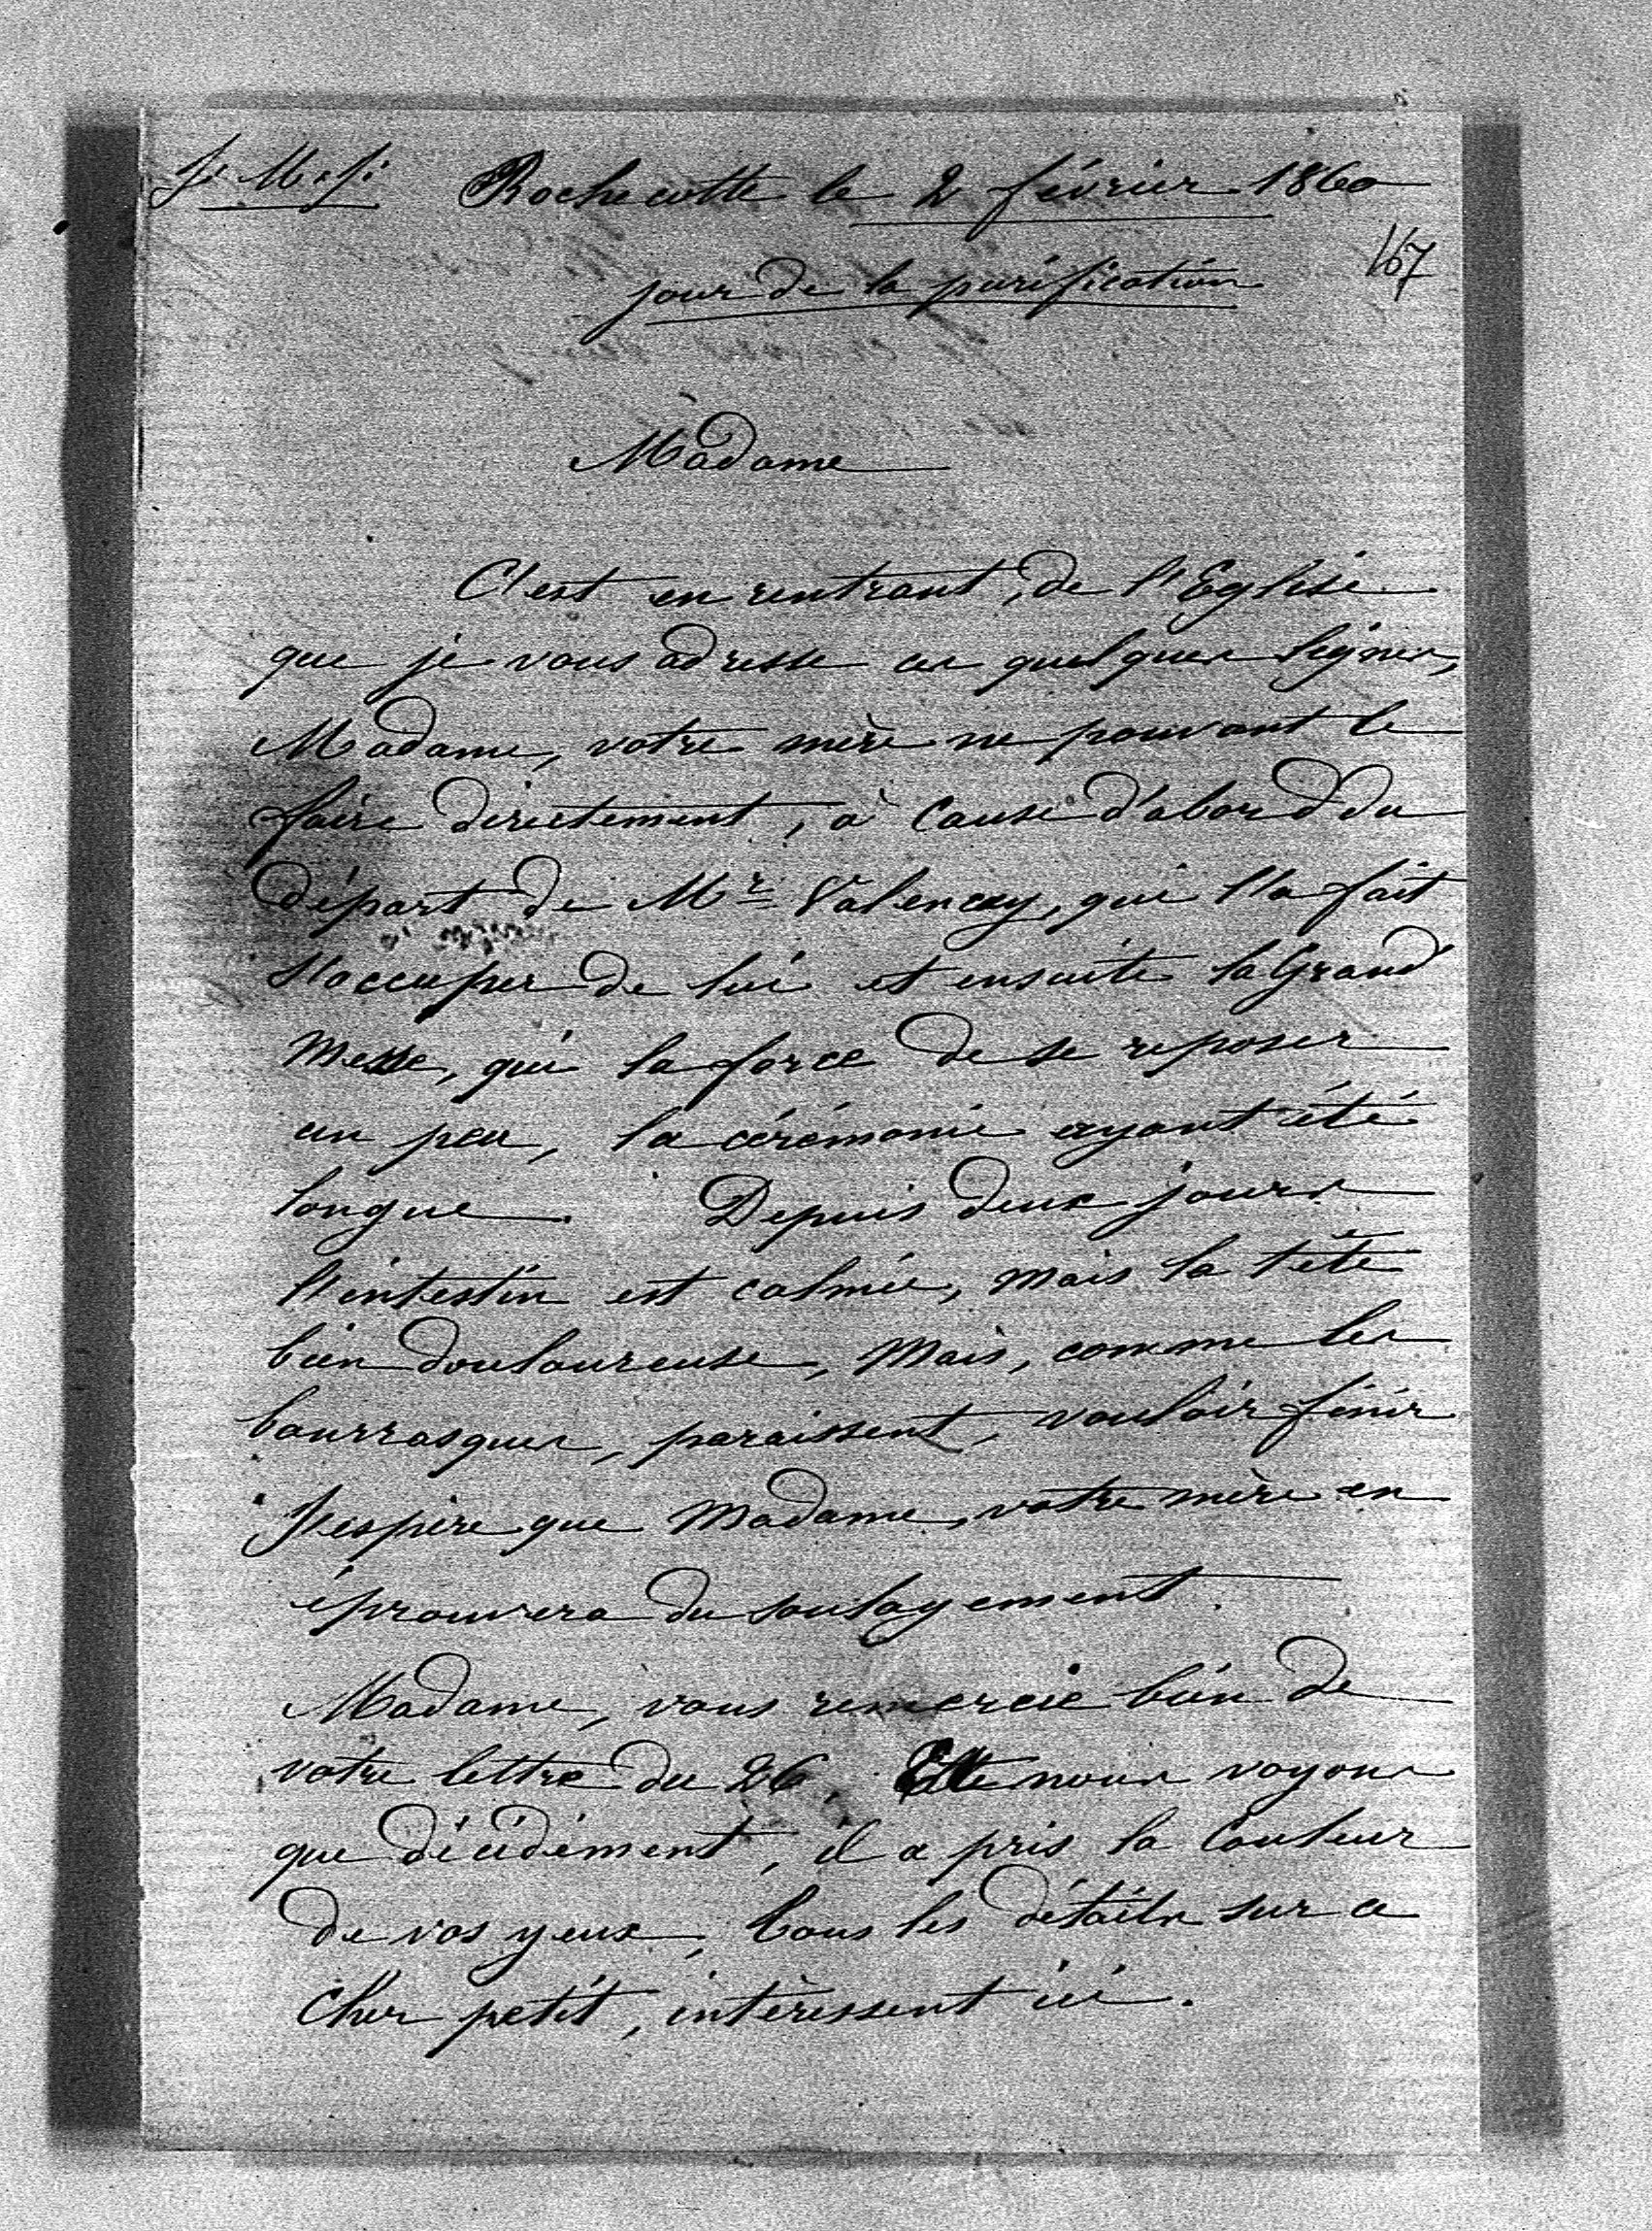 J. M. J. Rochecotte le 2 février 1860
167
jour de la purification
Madame
C'est en rentrant, de l'Eglise
que je vous adresse ces quelques lignes,
Madame, votre mère ne pouvant le
faire directement, à cause d'abord du
départ de Mr Valencay, qui l'a fait
s'occuper de lui et ensuite la Grand
Messe, qui la force de se reposer
un peu, la cérémonie ayant été
longue. Depuis deux jours
l'intestin est calmée, mais la tête
bien douloureuse, Mais, comme les
bourrasques, paraissent, vouloir finir
J'espère que Madame, votre mère en
éprouvera du soulagement.
Madame, vous remercie bien de
votre lettre du 26. Elle nous voyons
que décidément, il a pris la couleur
de vos yeux, tous les détails sur ce
cher petit, intéressent ici.